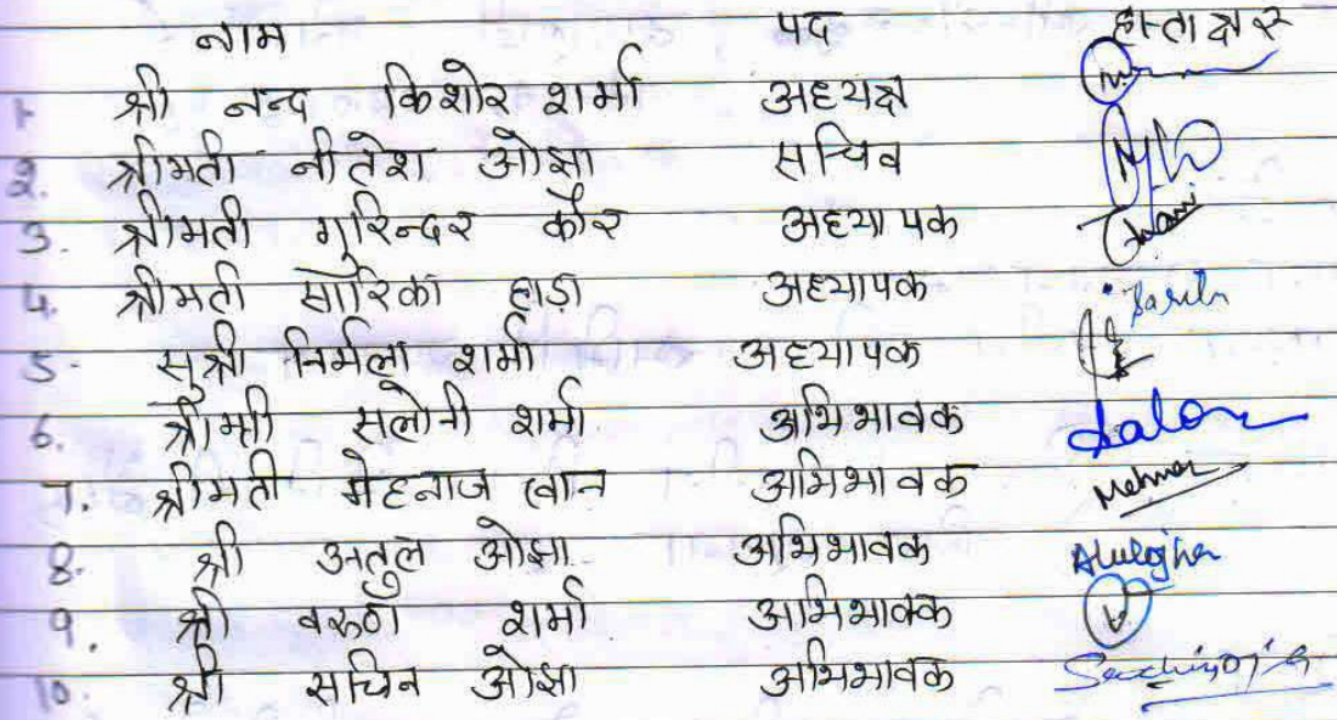 नाम पद हस्ताक्षर
1 श्री नन्द किशोर शर्मा अध्यक्ष
2. श्रीमती नीतेश ओझा सचिव
3. श्रीमती गुरिन्दर कौर अध्यापक
4. श्रीमती सारिका हाड़ा अध्यापक
5- सुश्री निर्मला शर्मा अध्यापक
6. श्रीमती सलोनी शर्मा अभिभावक
7. श्रीमती मेहनाज खान अभिभावक
8. श्री अतुल ओझा अभिभावक
9. श्री वरुण शर्मा अभिभावक
10. श्री सचिन ओझा अभिभावक